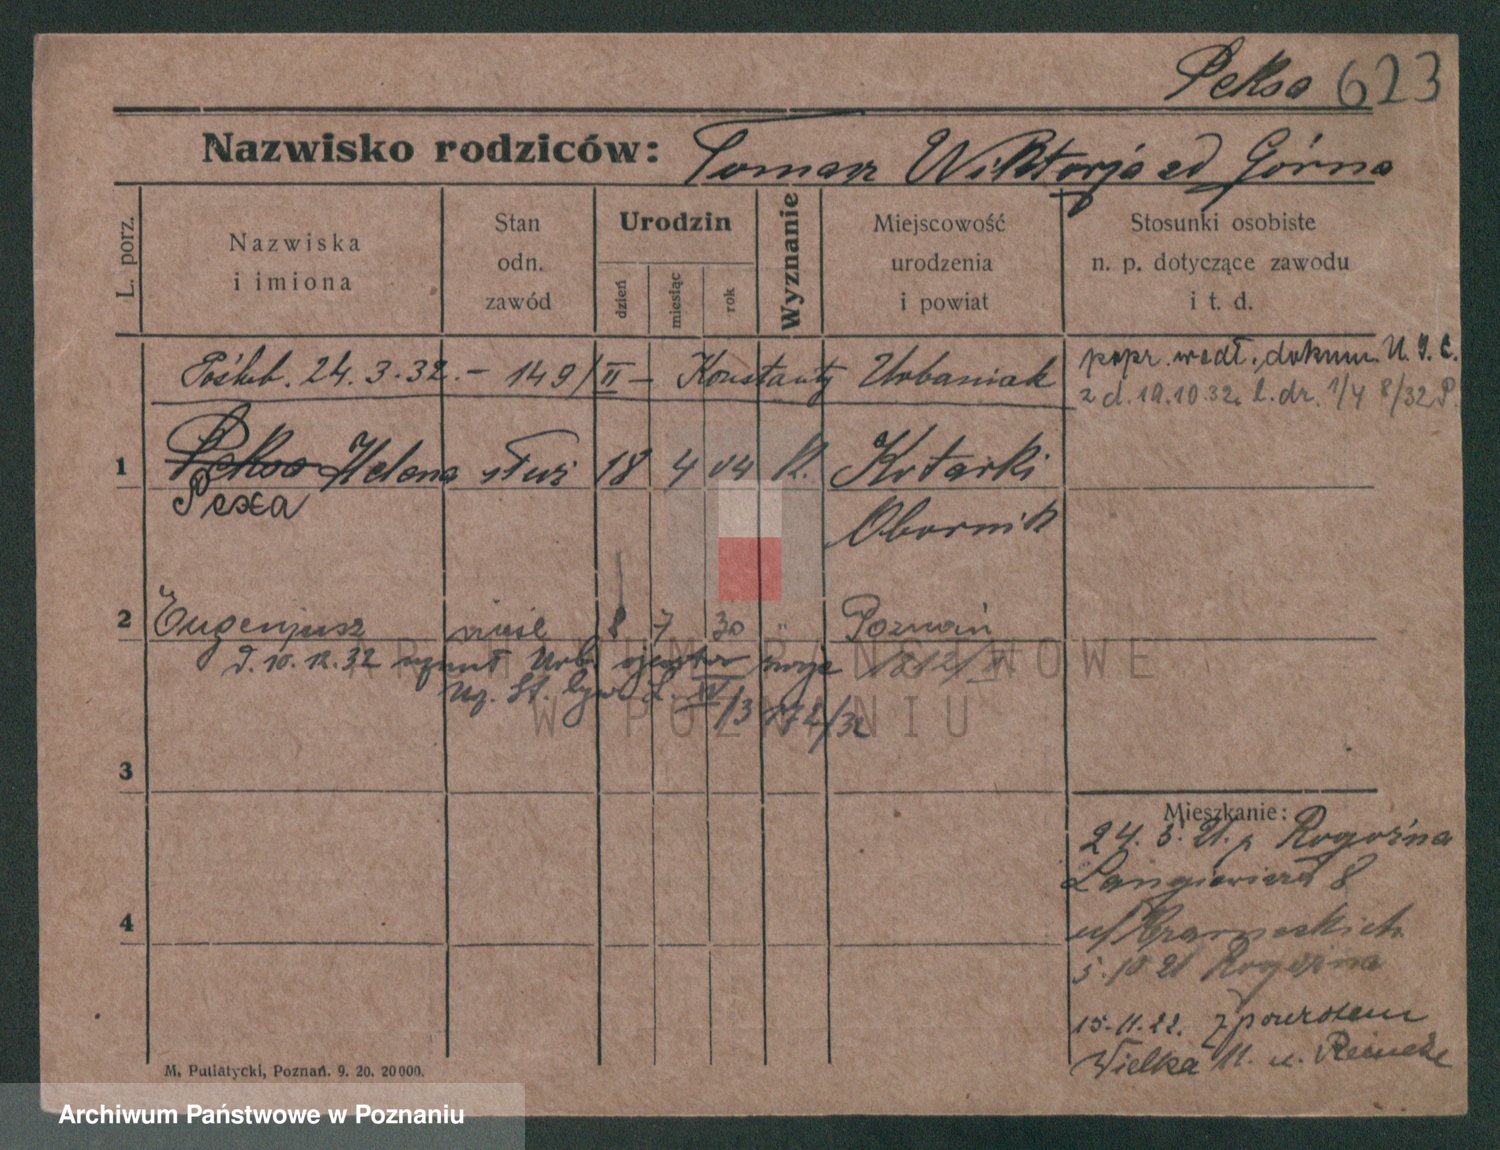 Peksa 623
Nazwisko rodziców: Tomasz Wiktorja zd Górna
L. porz.
Nazwiska i imiona
Stan odn. zawód
Urodzin
dzień
miesiąc
rok
Wyznanie
Miejscowość urodzenia i powiat
Stosunki osobiste n. p. dotyczące zawodu i t. d.
Poślub. 24.3.32. – 149/II – Konstanty Urbaniak
popr. wedł. dokum. U. S. C.
z d. 19.10.32. l. dr. 1/4 8/32 P.
1 Peksa Helena służ 18 4 04 k. Kotarki
Pexa
Obornik
2 Eugenjusz nieśl 8 7 30 " Poznań
D. 10.12.32 uznał Urb. ojcostwo swoje
Uz. St. Cyw. L. IV/3 172/32
3
4
Mieszkanie:
24.3.21. z Rogoźna
Langiewicza 8
u/
5.10 21 Rogoźna
15.11.22. z powrotem
Wielka 11. u.
M. Putiatycki, Poznań. 9. 20. 20 000.
ARCHIWUM PAŃSTWOWE
W POZNANIU
Archiwum Państwowe w Poznaniu